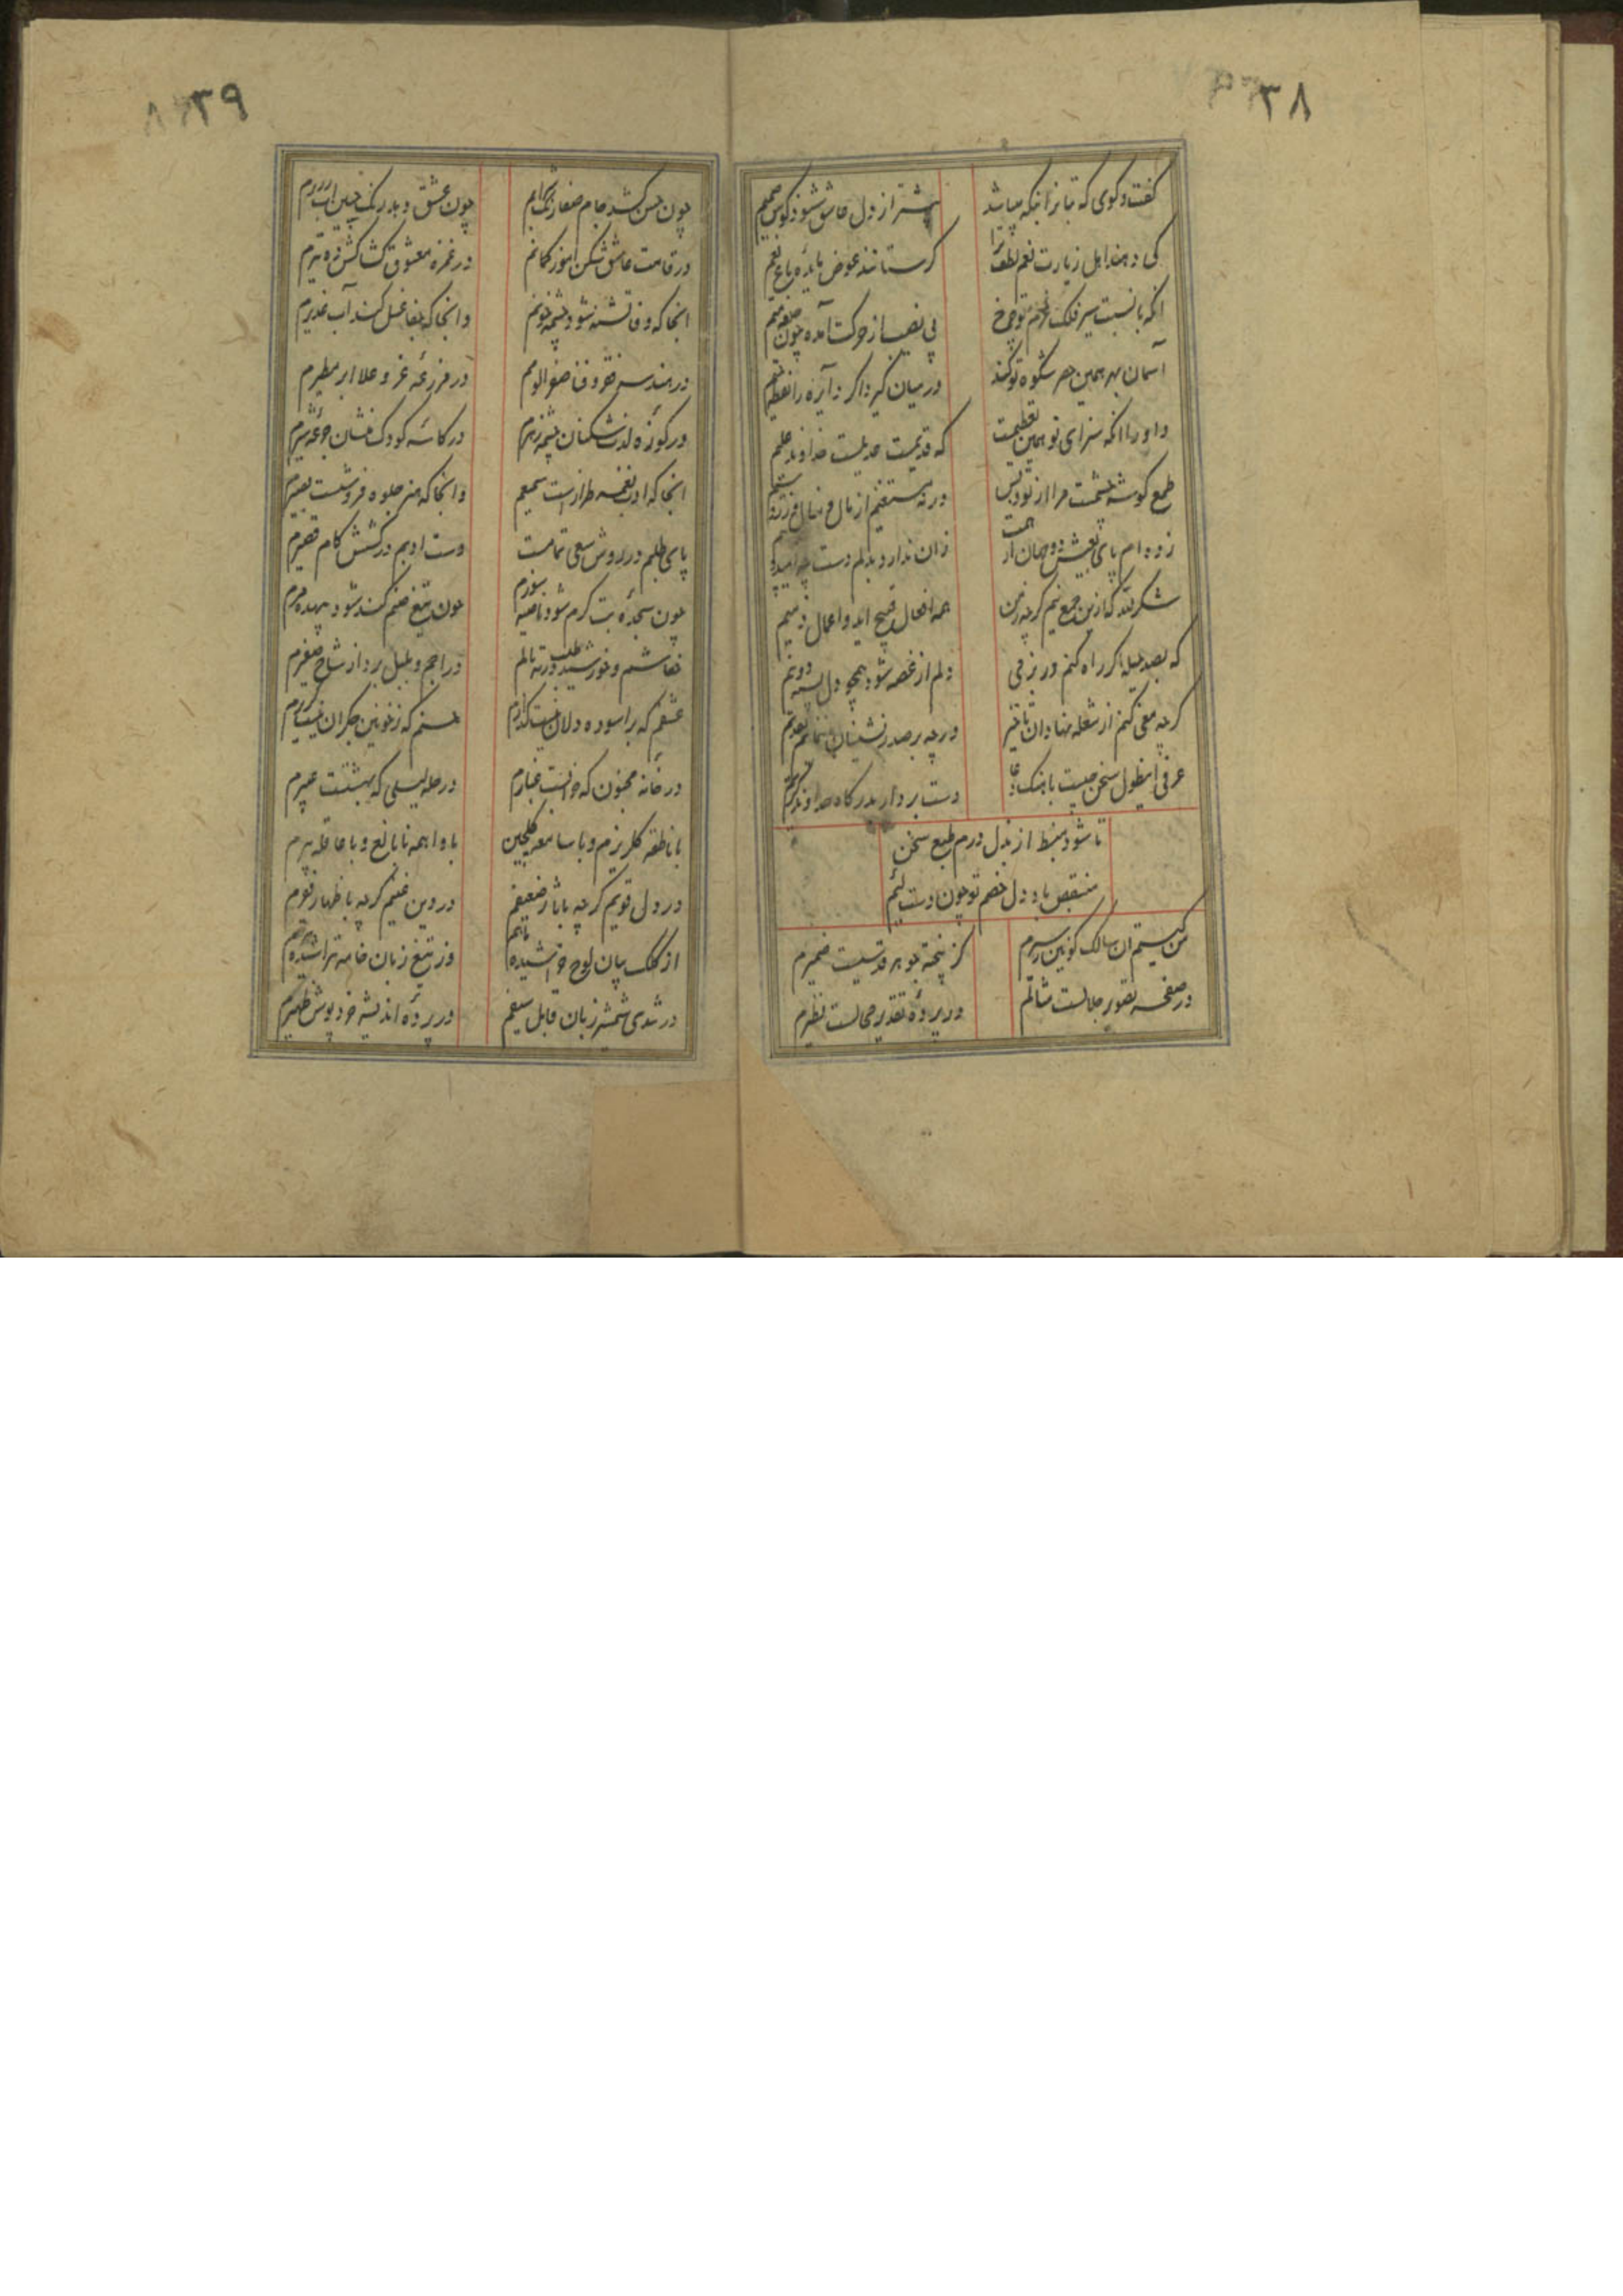 ۳۸
کفت و کوی که تبانرا نبکه میباشد
پیشتر از دل عاشق شنود کوش صمیم
کی دهند اهل زیارت نعم لطف ترا
کر ستانند عوض مایده باغ نعیم
انکه با نسبت سیر فلک عزم تو چرخ
بی نصیب از حرکت آمده چون
آسمان بهر همین حصر شکوه تو کند
در میان کیرد اکر دایره را نقطه
داورا انکه سزای تو همین تعظیمت
که قدیمت حدیثست خداوند علیم
طمع کوشه چشمت مرا از تو و بس
ورنه مستغنیم از مال و منال و زر و سیم
زده ام پای بعیش دو جهان از همت
زان ندارد بدلم دست
شکر لله که ازین جمع نیم کرچه زمن
همه افعال قبیح اید و اعمال ذمیم
که بصد حیله اکر راه کنم در بزمی
دلم از غصه شود همچو دل پسته دو نیم
کرچه منعی کنم از شعله نهادان تاخیر
ورچه بر صدر نشینان تقدیم
عرفی اینطول سخن چیست باهنک دعا
دست بردار بدرکاه خداوند کریم
تا شود منبسط از بذل درم طبع سخن
منقبض باد دل خصم تو چون دست لئیم
من کیستم ان سالک کونین مسیرم
کز پنجه جوهر قدسیست خمیرم
در صفحه تصویر جلالست مثالم
در پرده تقدیر محالست نظیرم
۳۹
چون حسن کشد جام صفا رنک شرابم
چون عشق دمد رنک
در قامت عاشق شکن اموز کمانم
در غمزه معشوق کشاکش ده تیرم
انجا که وفا تشنه شود چشمه خونم
و انجا که جفا غسل کند آب غدیرم
در هندسه فقر و فنا صفر الوفم
در مزرعه عز و علا ابر مطیرم
در کوزه لذت شکنان چشمه زهرم
در کاسه کودک منشان جرعه شیرم
انجا که ادب نغمه طرازست سمیعم
و انجا که هنر جلوه فروشست بصیرم
پای طلبم در روش سعی تمامست
دست ادبم در کشش کام قصیرم
چون سجده بت کرم شود ناصیه سوزم
چون تیغ صنم کند شود بیهده میرم
خفاشم و خورشید طلب در ته بالم
دراجم و بلبل برد از شاخ صفیرم
عشقم که بر اسوده دلان نیست کذارم
حسنم که ز خونین جکران نیست کزیرم
در خانه مجنون که خرابست غبارم
در حله لیلی که بهشتست عبیرم
با ناطقه کلریزم و با سامعه کلچین
با واهمه نابالغ و با عاقله پیرم
در دل قویم کرچه باثار ضعیفم
در دین غنیم کرچه باظهار فقیرم
از کلک بیان لوح خراشیده نایم
وز تیغ زبان خامه تراشیده تیرم
در شدی شمشیر زبان قابل سیفم
در پرده اندیشه خرد پوش ظهیرم